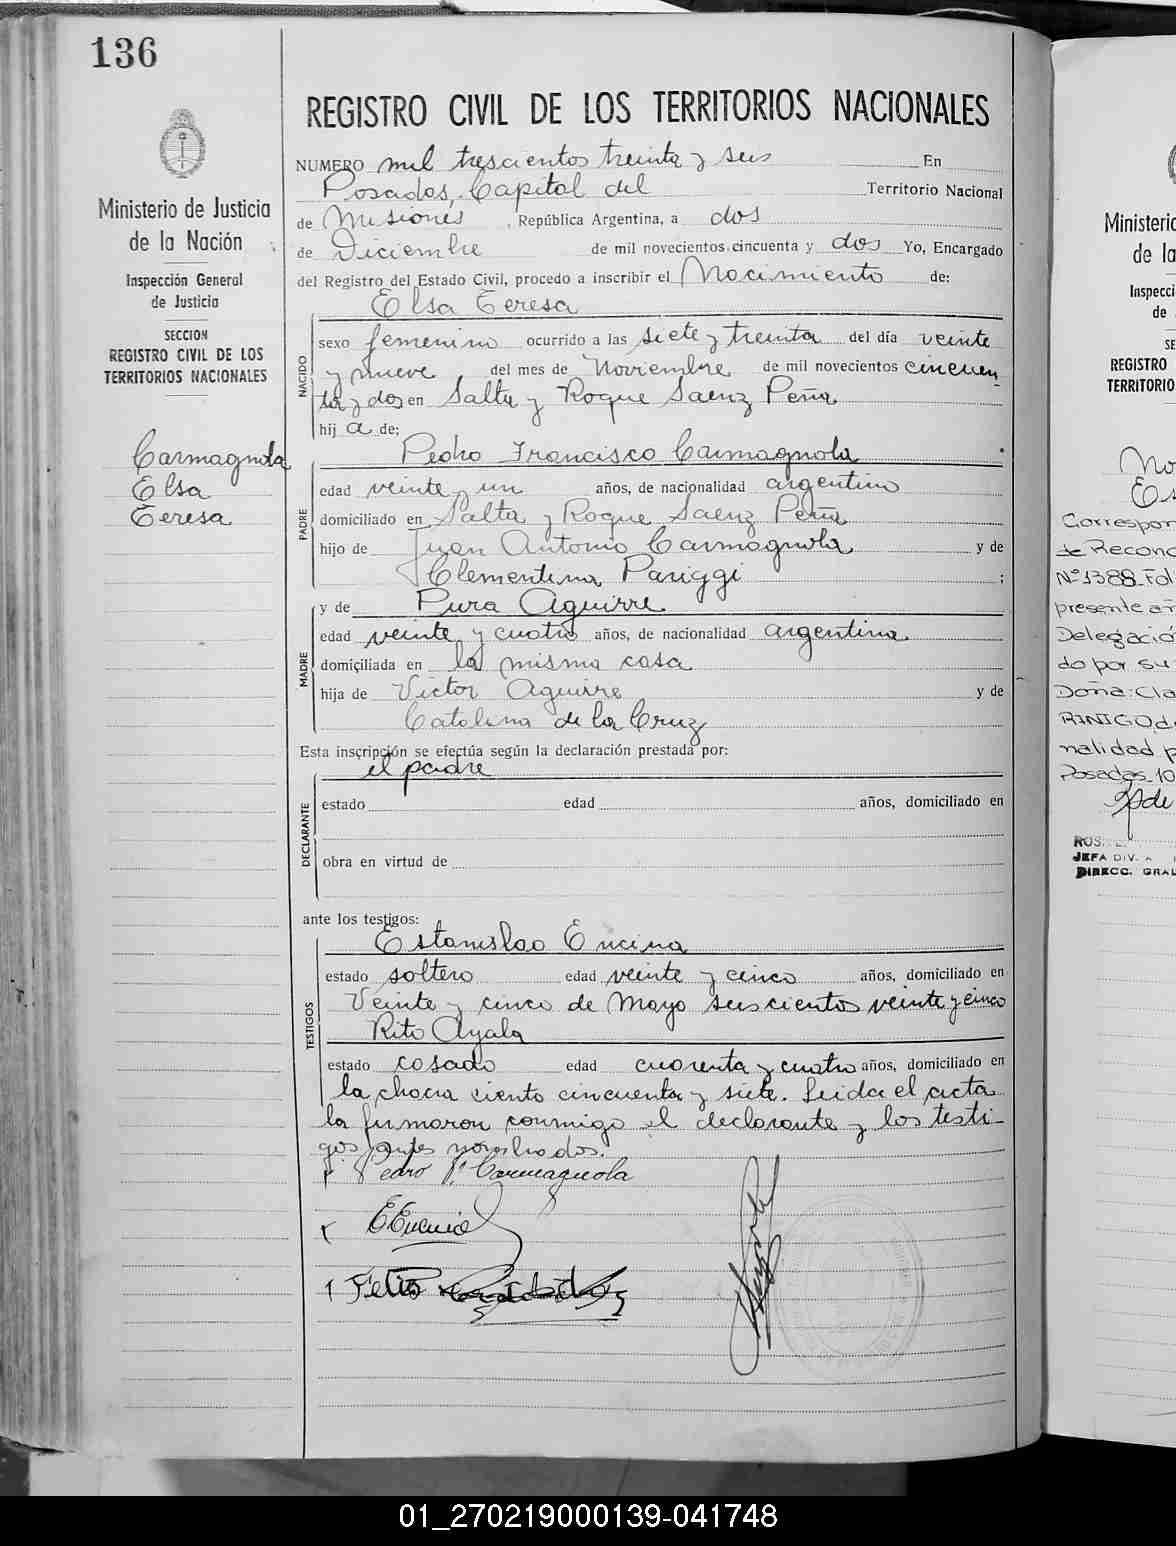 136
Ministerio de Justicia
de la Nación
Inspección General
de Justicia
SECCION
REGISTRO CIVIL DE LOS
TERRITORIOS NACIONALES
Carmagnola
Elsa
Teresa
REGISTRO CIVIL DE LOS TERRITORIOS NACIONALES
NUMERO mil trescientos treinta y seis En
Posadas, Capital del Territorio Nacional
de Misiones, República Argentina, a dos
de Diciembre de mil novecientos cincuenta y dos Yo, Encargado
del Registro del Estado Civil, procedo a inscribir el Nacimiento de:
Elsa Teresa
NACIDO
sexo femenino ocurrido a las siete y treinta del día veinte
y nueve del mes de Noviembre de mil novecientos cincuen
ta y dos en Salta y Roque Saenz Peña
hij a de:
Pedro Francisco Carmagnola
PADRE
edad veinte y un años, de nacionalidad argentino
domiciliado en Salta y Roque Saenz Peña
hijo de Juan Antonio Carmagnola y de
Clementina Pariggi ;
y de Pura Aguirre
MADRE
edad veinte y cuatro años, de nacionalidad argentina
domiciliada en la misma casa
hija de Victor Aguirre y de
Catalina de la Cruz
Esta inscripción se efectúa según la declaración prestada por:
el padre
DECLARANTE
estado edad años, domiciliado en
obra en virtud de
ante los testigos:
Estanislao Encina
TESTIGOS
estado soltero edad veinte y cinco años, domiciliado en
Veinte y cinco de Mayo seiscientos veinte y cinco
Rito Ayala
estado casado edad cuarenta y cuatro años, domiciliado en
la chacra ciento cincuenta y siete. Leida el acta
la firmaron conmigo el declarante y los testi-
gos antes nombrados.
Pedro F. Carmagnola
E Encina
Ministeri
de la
Inspecci
de
SE
REGISTRO
TERRITORIO
No
Es
Correspon
de Recono
Nº 1388 Fol
presente añ
Delegació
do por su
Doña: Cla
nalidad p
Posadas 10
JEFA DIV.
DIRECC. GRAL
01_270219000139-041748